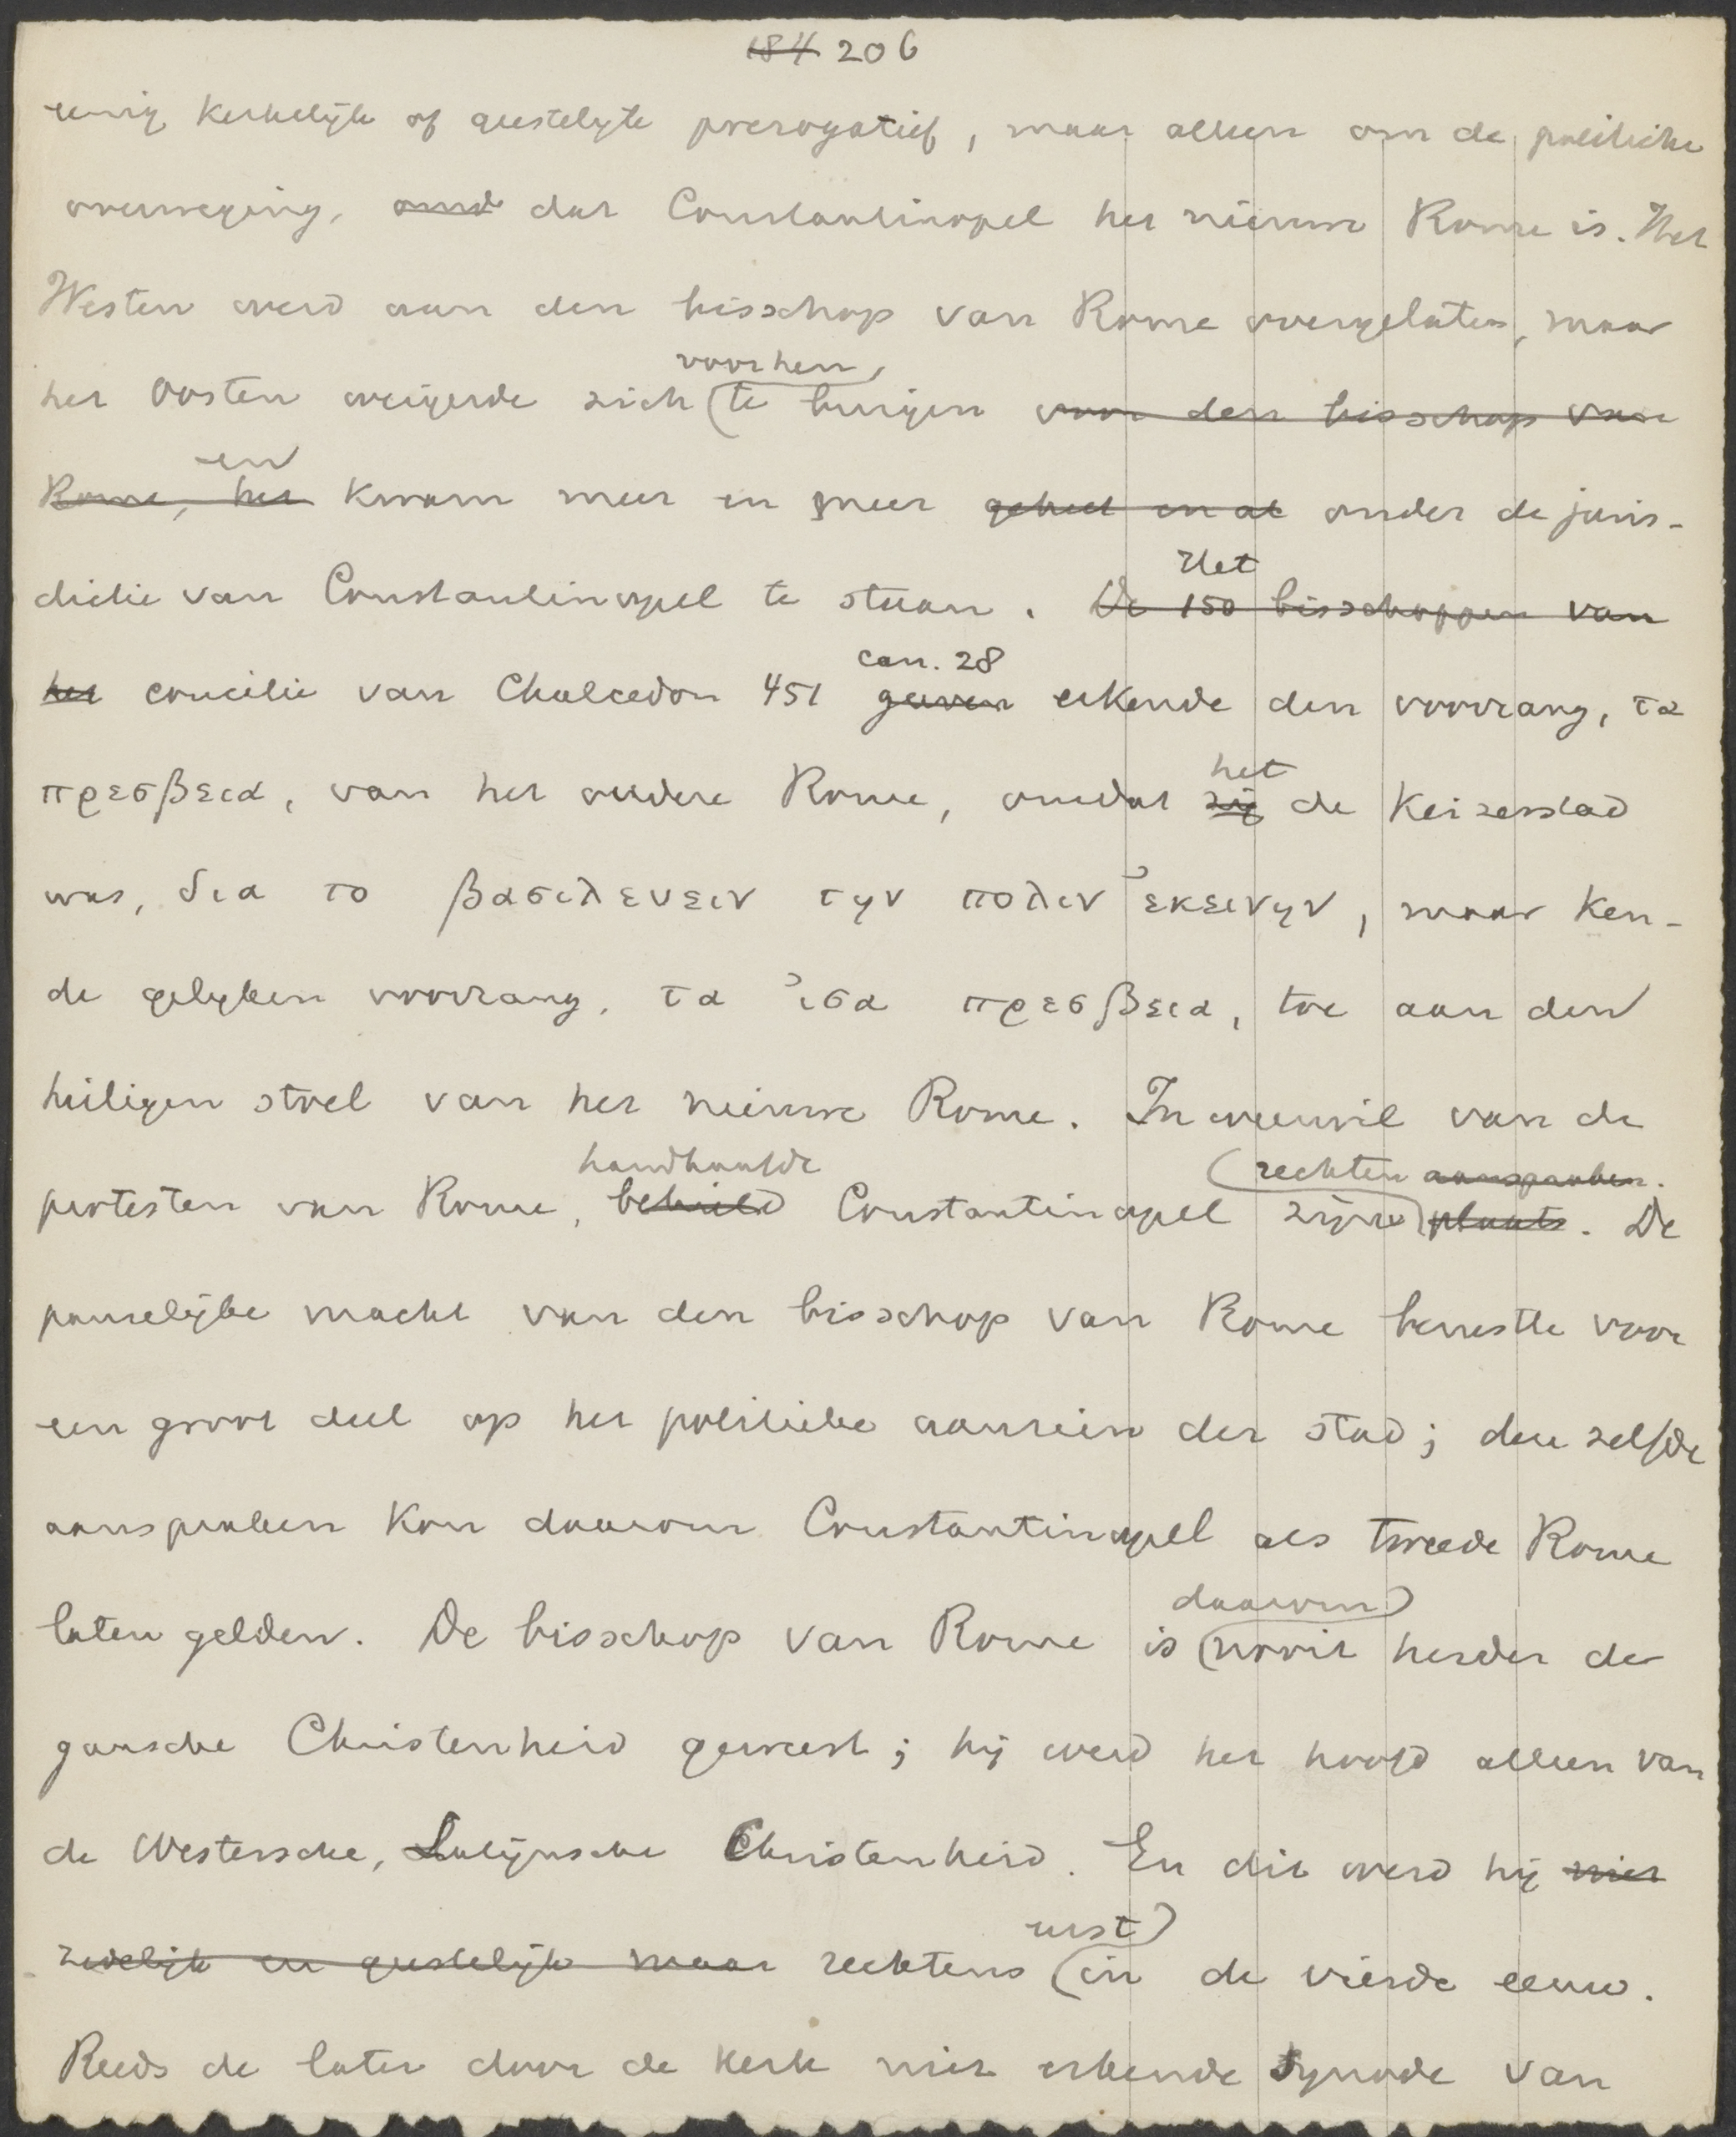 184 206
eenig kerkelijk of geestelijk prerogatief, maar alleen om de politieke
overweging, omd dat Constantinopel het nieuwe Rome is. Het
Westen werd aan den bisschop van Rome overgelaten, maar
voor hen,
het Oosten weigerde zich te buigen voor den bisschop van
en
Rome, het kwam meer en meer geheel en al onder de juris-
dictie van Constantinopel te staan. De 150 bisschoppen van
Het
het concilie van Chalcedon 451 gaven erkende den voorrang, τα
can. 28
πρεσβεια, van het oudere Rome, omdat zij de Keizerstad
het
was, δια το βασιλευειν την πολιν ἐκεινην, maar ken-
de gelyken voorrang, τα ἰσα πρεσβεια, toe aan den
heiligen stoel van het nieuwe Rome. In weerwil van de
handhaafde rechten aanspraken.
protesten van Rome, behield Constantinopel zijne plaats. De
pauselijke macht van den bisschop van Rome berustte voor
een groot deel op het politieke aanzien der stad; dezelfde
aanspraken kon daarom Constantinopel als tweede Rome
daarom
laten gelden. De bisschop van Rome is nooit herder der
gansche Christenheid geweest; hij werd het hoofd alleen van
de Westersche, Latijnsche Christenheid. En dit werd hij niet
eerst
zedelijk en geestelijk maar rechtens in de vierde eeuw.
Reeds de later door de kerk niet erkende synode van